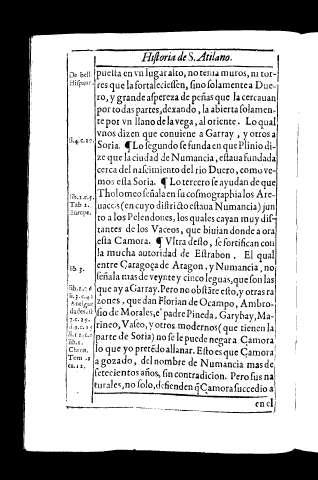 Historia de S. Atilano.
puesta en vn lugar alto, no tenia muros, ni tor-
res que la fortaleciessen, sino solamente a Due-
ro, y grande aspereza de peñas que la cercauan
por todas partes, dexando, la abierta solamen-
te por vn llano de la vega, al oriente. Lo qual
vnos dizen que conuiene a Garray, y otros a
Soria. ¶ Lo segundo se funda en que Plinio di-
ze que la ciudad de Numancia, estaua fundada
cerca del nascimiento del rio Duero, como ve-
mos esta Soria. ¶ Lo tercero se ayudan de que
Tholomeo señala en su cosmographia los Are-
uaccos (en cuyo districto estaua Numancia) jun
to a los Pelendones, los quales cayan muy dis-
tantes de los Vaceos, que biuian donde a ora
esta Camora. ¶ Vltra desto, se fortifican con
la mucha autoridad de Estrabon. El qual
entre Caragoça de Aragon, y Numancia, no
señala mas de veynte y cinco leguas, que son las
que ay a Garray. Pero no obstāte esto, y otras ra
zones, que dan Florian de Ocampo, Ambro-
sio de Morales, e' padre Pineda, Garybay, Ma-
rineo, Vaseo, y otros modernos (que tienen la
parte de Soria) no se le puede negar a Camora
lo que yo pretēdo allanar. Esto es que Camora
a gozado, del nombre de Numancia mas de
setecientos años, sin contradicion. Pero sus na
turales, no solo, defienden q̄ Camora succedio a
en el
De bell.
Hispan.
li. 4. c. 27.
lib. 2. c. 5.
Tab 2.
Europæ.
lib. 3.
lib. 2. c. 6
Antigue
dades.
lib. 1.
Chron.
Tom. 1
ca. 12.